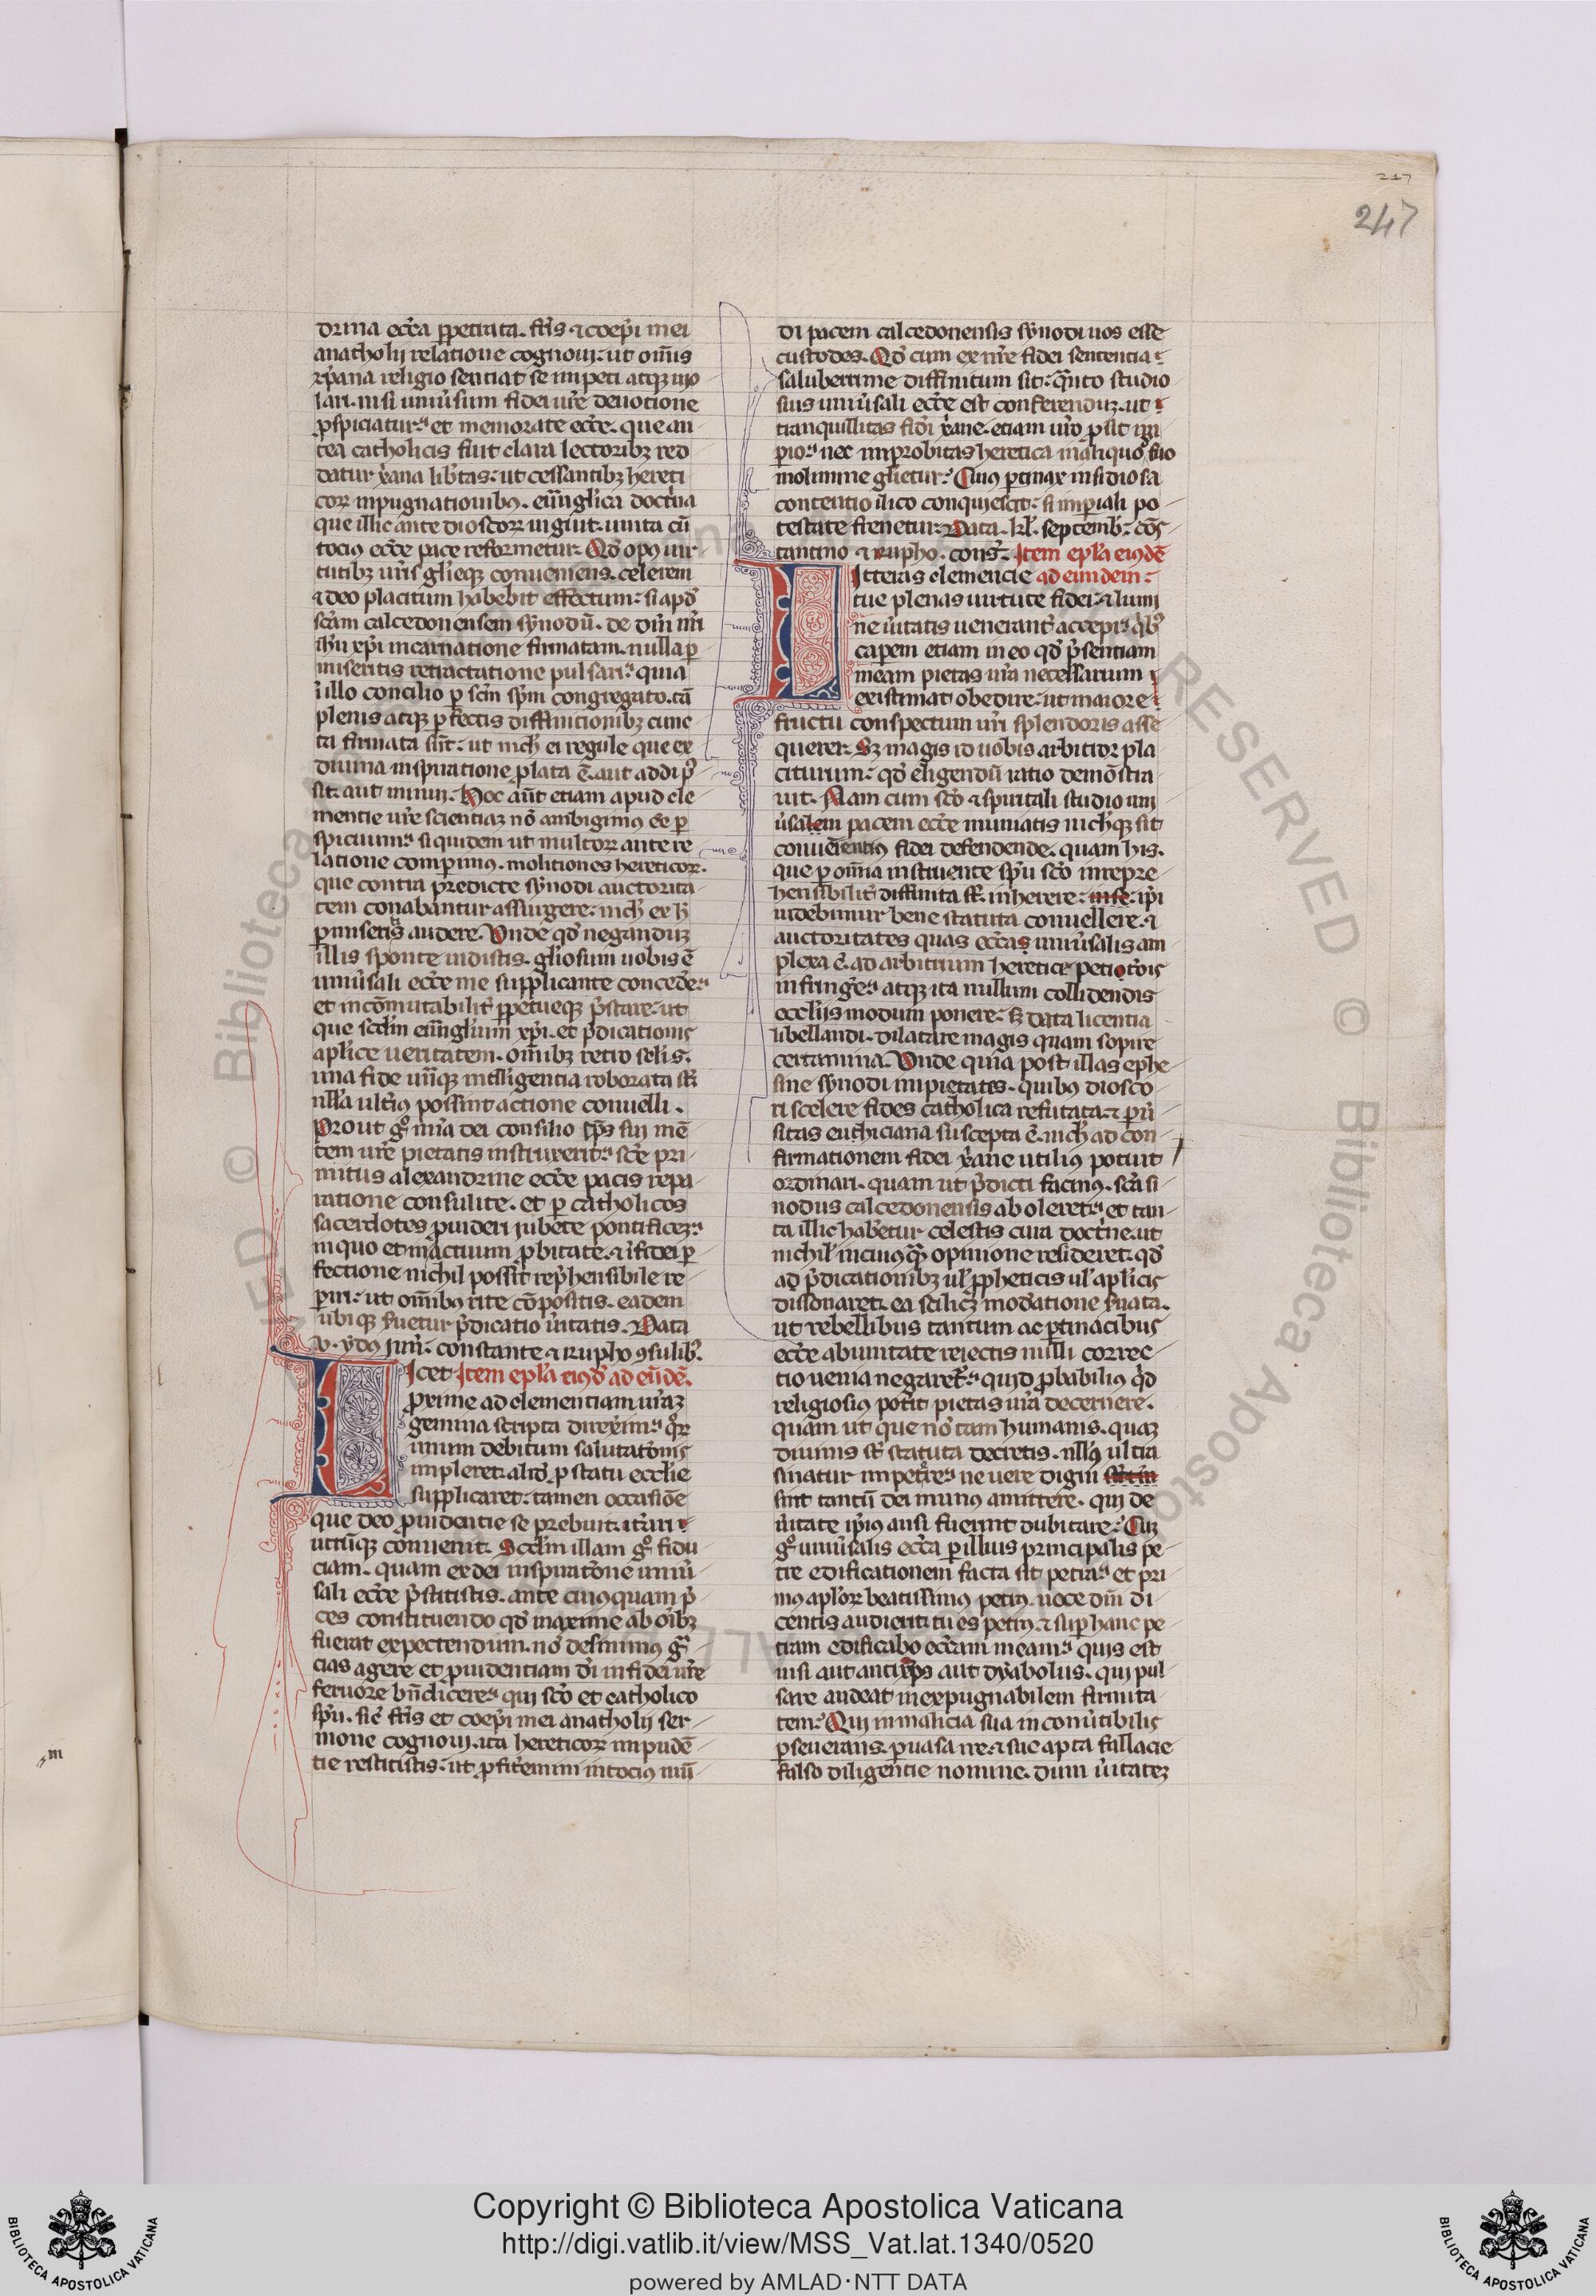 217
247
drina ecc̄a ꝑpetrata. fr̄is ⁊ coep̄i mei
anatholij relatione cognoui. ut om̄is
xp̄iana religio sentiat se impeti atq; uio
lari. nisi uniu͛sum fidei ur̄e deuotione
ꝓspiciatur. et memorate ecc̄e. que an
tea catholicis fuit clara lectoribꝫ red
datur xp̄ana lib͛tas. ut cessantibꝫ hereti
coꝝ inpugnationibꝯ. euu̅nglica doctͥna
que illic ante dioscoꝝ uiguit. iuncta cū
tociꝯ ecc̄e pace reformetur. Qd̄ opꝯ uir
tutibꝫ ur̄is gl̄ieqꝫ conueniens. celerem
⁊ deo placitum habebit effectum. si apd̄
sc̄am calcedonensem synodū. de dn̄i nr̄i
ih̄u xp̄i incarnatione firmatam. nulla ꝑ
miseritis retractatione pulsari. quia
ī illo concilio ꝑ sc̄m sp̄m congregato. tā
plenis atqꝫ ꝑfectis diffinitionibꝫ cunc
ta firmata sūt. ut nich̄ ei regule que ex
diuina inspiratione ꝓlata ē. aut addi pͦs
sit. aut minui. Hoc aūt etiam apud cle
mentie ur̄e scientiaꝫ nō ambigimꝯ eē ꝑ
spicuum. siquidem ut multoꝝ ante re
latione comperimꝯ. molitiones hereticoꝝ.
que contra predicte synodi auctorita
tem conabantur assurgere. nich̄ ex h̄
ꝑmiseritis audere. Unde qd̄ negandūꝫ
illis sponte uidistis. gl̄iosum uobis ē
uniu͛sali ecc̄e me supplicante concedē.
et incōmutabilit͛ ꝑpetueqꝫ p̄stare. ut
que scd̄m euu̅ngl̄ium xp̄i. et p̄dicationis
apl̄ice ueritatem. om̄ibꝫ retro sc̄lis.
una fide unaqꝫ intelligentia roborata sūt
nll̄a ult͛iꝯ possint actione conuelli.
Prout gͦ mīa dei consilio sp̄s sui mē
tem ur̄e pietatis instruxerit. sc̄e pri
mitus alexandrine ecc̄e pacis repa
ratione consulite. et ꝑ catholicos
sacerdotes ꝓuideri iubete pontificeꝫ.
in quo et in actuum ꝓbitate. ⁊ ī fidei ꝑ
fectione nichil possit rep̄hensibile re
ꝑiri. ut om̄ibꝯ rite cōpositis. eadem
ubiqꝫ seruetur p̄dicatio u͛itatis. Data
v. ydꝯ constante ⁊ rupho ꝯsulibꝫ.
Licet Item epl̄a eiꝯd̄ ad eūdē.
proxime ad clementiam ur̄aꝫ
gemina scripta direxim. qͦꝝ
unum debitum salutatōnis
impleret. aliud ꝓ statu eccl̄ie
supplicaret. tamen occasiōe
que deo ꝓuidentie se prebuit. iterari
utrūqꝫ conuenit. Scd̄m illam gͦ fidu
ciam. quam ex dei inspiratōne uniu͛
sali ecc̄e p̄stitistis. ante cuiꝯquam p̄
ces constituendo qd̄ maxime ab oībꝫ
fuerat expectendum. nō desinimꝯ gͣ
cias agere et ꝓuidentiam dei in fidei ur̄e
feruore bn̄dicere. qui sc̄o et catholico
sp̄u. sic̄ fr̄is et coep̄i mei anatholij ser
mone cognoui. ita hereticoꝝ impudē
tie restitistis. ut ꝓfitemini in tociꝯ mū
di pacem calcedonensis synodi uos esse
custodes. Qd̄ cum ex nr̄e fidei sententia
saluberrime diffinitum sit. qͣnto studio
suis uniu͛sali ecc̄e est conferenduꝫ. ut
tranquillitas fidei xp̄ane. etiam ur̄o ꝓsit im
ꝑio. nec improbitas heretica in aliquo suo
molimine gl̄ietur. Cuiꝯ ꝑtinax insidiosa
contentio ilico conquiescit. si imꝑiali po
testate frenetur. Data. kl̄. septemb͛. cōs
tantino ⁊ rupho. conss. Item epl̄a eiꝯdē
Litteras clemencie ad eundem.
tue plenas uirtute fidei. ⁊ lumi
ne u͛itatis ueneranter accepi. qͥbꝫ
capem etiam in eo qd̄ p̄sentiam
meam pietas ur̄a necessarium
existimat obedire. ut maiore
fructu conspectum ur̄i splendoris asse
querer. Sꝫ magis id uobis arbitror pla
citurum. qd̄ eligendū ratio demōstra
uit. Nam cum sc̄o ⁊ spiritali studio uni
u͛salem pacem ecc̄e muniatis nichilqꝫ sit
conueientiꝯ fidei defendende. quam his.
que ꝑ om̄ia instruente sp̄u sc̄o inrepre
hensibilit͛ diffinita st̄. inherere. ip̄i
uidebimur bene statuta conuellere. ⁊
auctoritates quas ecc̄as uniu͛salis am
plexa ē. ad arbitrium heretice petitōis
infringe͛. atqꝫ ita nullum collidendis
eccl̄iis modum ponere. sꝫ data licentia
libellandi. dilatare magis quam sopire
certamina. Unde quia post illas ephe
sine synodi impietates. quibꝯ diosco
ri scelere fides catholica refutata. ⁊ ꝑu͛
sitas euthiciana suscepta ē. nich̄ ad con
firmationem fidei xp̄ane utiliꝯ potuit
ordinari. quam ut p̄dicti facinꝯ. sc̄a si
nodus calcedonensis aboleret. et tan
ta illic habetur celestis cura doctͥne. ut
nichil in cuiusqꝫ opinione resideret. qd̄
ad p̄dicationibꝫ ul̄ ꝓpheticis ul̄ apl̄icis
dissonaret. ea scilicꝫ mod͛atione seruata.
ut rebellibus tantum ac ꝑtinacibus
ecc̄e ab unitate reiectis nulli correc
tio uenia negaret͛. quid ꝓbabiliꝯ qͥd
religiosiꝯ pot͛it pietas ur̄a decernere.
quam ut que nō tam humanis. quaꝫ
diuinis st̄ statuta decretis. nllꝯ ultra
sinatur impetere. ne uere digni
sint tantū dei munꝯ amittere. qui de
u͛itate ip̄iꝯ ausi fuerint dubitare. Cuꝫ
gͦ uniu͛salis ecc̄a ꝑ illius principalis pe
tre edificationem facta sit petra. et pri
mꝯ apl̄oꝝ beatissimꝯ petrꝯ. uoce dn̄i di
centis audierit. tu es petrꝯ. ⁊ sup hanc pe
tram edificabo ecc̄am meam. quis est
nisi aut antixp̄s aut dyabolus. qui pul
sare audeat inexpugnabilem firmita
tem. Qui in malicia sua inconu͛tibilis
ꝑseuerans. ꝑ uasa ire. ⁊ sue apta fallacie
falso diligentie nomine. dum u͛itateꝫ
Copyright © Biblioteca Apostolica Vaticana
http://digi.vatlib.it/view/MSS_Vat.lat.1340/0520
powered by AMLAD·NTT DATA
BIBLIOTECA APOSTOLICA VATICANA
BIBLIOTECA APOSTOLICA VATICANA